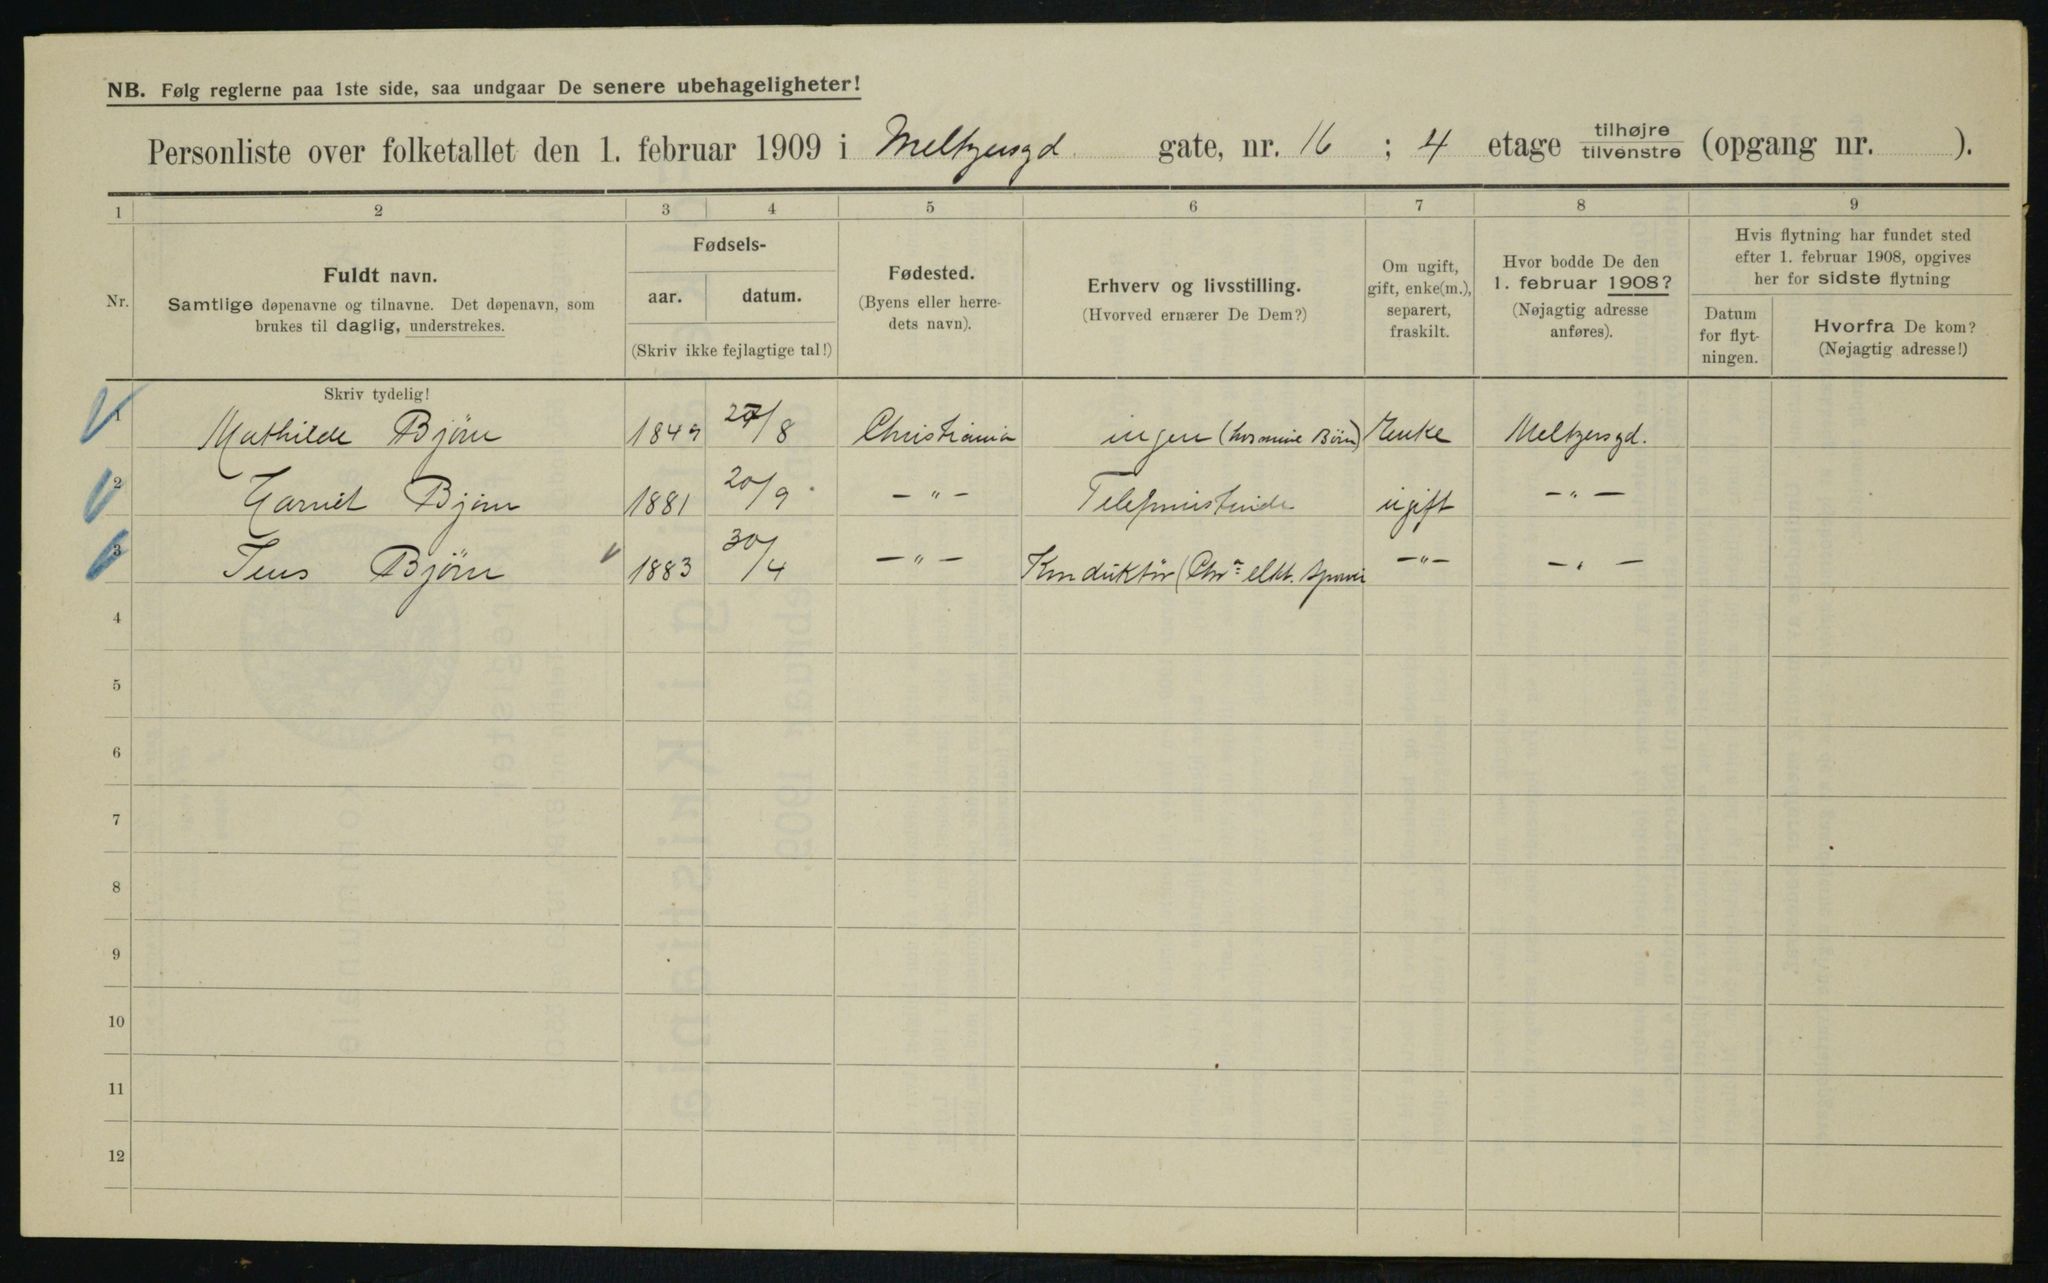 NB. Følg reglerne paa 1ste side, saa undgaar De senere ubehageligheter!
Personliste over folketallet den 1. februar 1909 i Meltzersgd. gate, nr. 16 ; 4 etage tilhøjre/tilvenstre (opgang nr. ).
1 2 3 4 5 6 7 8 9
Nr.
Fuldt navn.
Samtlige døpenavne og tilnavne. Det døpenavn, som
brukes til daglig, understrekes.
Fødsels-
aar. datum.
(Skriv ikke fejlagtige tal!)
Fødested.
(Byens eller herre-
dets navn).
Erhverv og livsstilling.
(Hvorved ernærer De Dem?)
Om ugift,
gift, enke(m.),
separert,
fraskilt.
Hvor bodde De den
1. februar 1908?
(Nøjagtig adresse
anføres).
Hvis flytning har fundet sted
efter 1. februar 1908, opgives
her for sidste flytning
Datum
for flyt-
ningen.
Hvorfra De kom?
(Nøjagtig adresse!)
Skriv tydelig!
1 Mathilde Bjørn 1849 27/8 Christiania ingen (hos mine Børn) Enke Meltzersgd.
2 Harriet Bjørn 1881 20/9 — " — Telefonistinde ugift — " —
3 Jens Bjørn 1883 30/4 — " — Konduktør (Chra elkt. Sporvei — " — — " —
4
5
6
7
8
9
10
11
12